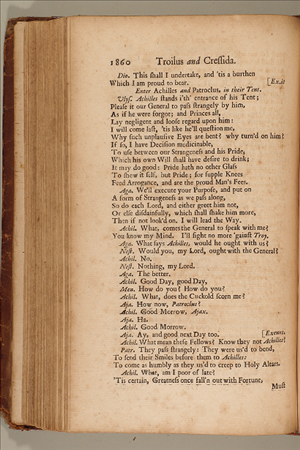 1860 Troilus and Cressida.
Dio. This shall I undertake, and 'tis a burthen
Which I am proud to bear. [Exit
Enter Achilles and Patroclus, in their Tent.
Ulys. Achilles stands i'th' entrance of his Tent;
Please it our General to pass strangely by him,
As if he were forgot; and Princes all,
Lay negligent and loose regard upon him:
I will come last, 'tis like he'll question me,
Why such unplausive Eyes are bent? why turn'd on him?
If so, I have Decision medicinable,
To use between our Strangeness and his Pride,
Which his own Will shall have desire to drink;
It may do good: Pride hath no other Glass
To shew it self, but Pride; for supple Knees
Feed Arrogance, and are the proud Man's Fees.
Aga. We'll execute your Purpose, and put on
A form of Strangeness as we pass along,
So do each Lord, and either greet him not,
Or else disdainfully, which shall shake him more,
Then if not look'd on. I will lead the Way.
Achil. What, comes the General to speak with me?
You know my Mind. I'll fight no more 'gainst Troy.
Aga. What says Achilles, would he ought with us?
Nest. Would you, my Lord, ought with the General?
Achil. No.
Nest. Nothing, my Lord.
Aga. The better.
Achil. Good Day, good Day.
Men. How do you? How do you?
Achil. What, does the Cuckold scorn me?
Aja. How now, Patroclus?
Achil. Good Morrow, Ajax.
Aja. Ha.
Achil. Good Morrow.
Aja. Ay, and good next Day too. [Exeunt.
Achil. What mean these Fellows? Know they not Achilles?
Patr. They pass strangely: They were us'd to bend,
To send their Smiles before them to Achilles:
To come as humbly as they us'd to creep to Holy Altars.
Achil. What, am I poor of late?
'Tis certain, Greatness once fall'n out with Fortune,
Must